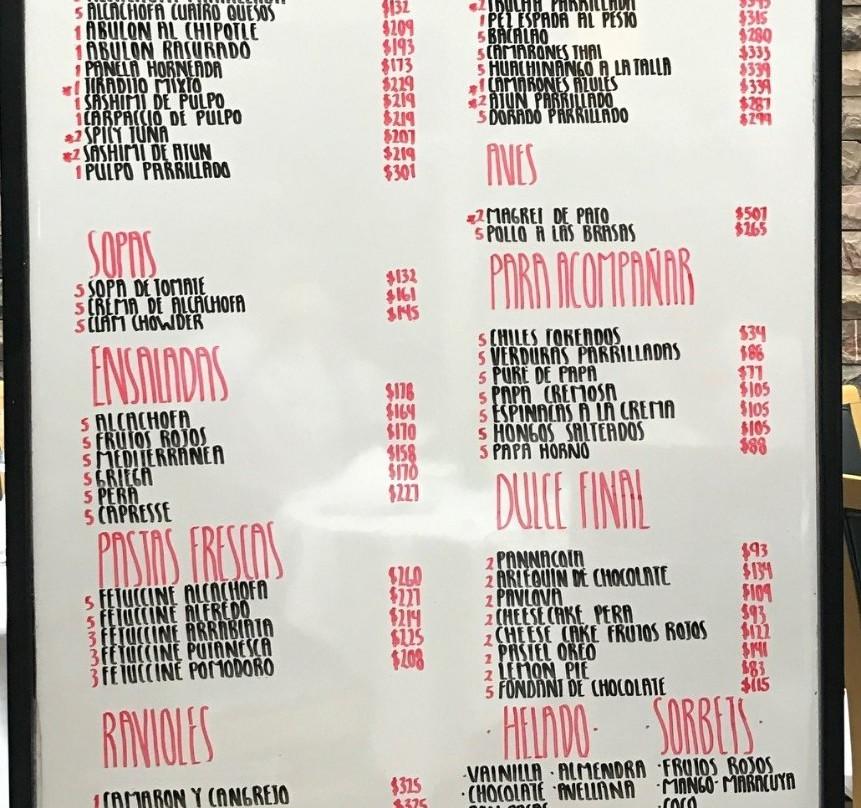 5 ALCACHOFA CUATRO QUESOS $132
1 ABULON AL CHIPOTLE $209
1 ABULON RASURADO $193
1 PANELA HORNEADA $173
*1 TIRADITO MIXTO $229
1 SASHIMI DE PULPO $219
1 CARPACCIO DE PULPO $219
*2 SPICY TUNA $207
*2 SASHIMI DE ATUN $219
1 PULPO PARRILLADO $301
SOPAS
5 SOPA DE TOMATE $132
5 CREMA DE ALCACHOFA $161
5 CLAM CHOWDER $145
ENSALADAS
5 ALCACHOFA $178
5 FRUTOS ROJOS $164
5 MEDITERRANEA $170
5 GRIEGA $158
5 PERA $170
5 CAPRESSE $227
PASTAS FRESCAS
5 FETUCCINE ALCACHOFA $260
5 FETUCCINE ALFREDO $227
3 FETUCCINE ARRABIATA $214
3 FETUCCINE PUTANESCA $225
3 FETUCCINE POMODORO $208
RAVIOLES
1 CAMARON Y CANGREJO $325
$325
PARRILLADA $345
1 PEZ ESPADA AL PESTO $315
5 BACALAO $280
5 CAMARONES THAI $333
5 HUACHINANGO A LA TALLA $339
*1 CAMARONES AZULES $339
*2 ATUN PARRILLADO $287
5 DORADO PARRILLADO $299
AVES
*2 MAGRET DE PATO $507
5 POLLO A LAS BRASAS $265
PARA ACOMPAÑAR
5 CHILES TOREADOS $34
5 VERDURAS PARRILLADAS $86
5 PURE DE PAPA $77
5 PAPA CREMOSA $105
5 ESPINACAS A LA CREMA $105
5 HONGOS SALTEADOS $105
5 PAPA HORNO $88
DULCE FINAL
2 PANNACOTA $93
2 ARLEQUIN DE CHOCOLATE $134
2 PAVLOVA $109
2 CHEESECAKE PERA $93
2 CHEESE CAKE FRUTOS ROJOS $122
2 PASTEL OREO $141
2 LEMON PIE $83
5 FONDANT DE CHOCOLATE $115
· HELADO · · SORBETS ·
·VAINILLA ·ALMENDRA ·FRUTOS ROJOS
·CHOCOLATE ·AVELLANA ·MANGO-MARACUYA
·COCO